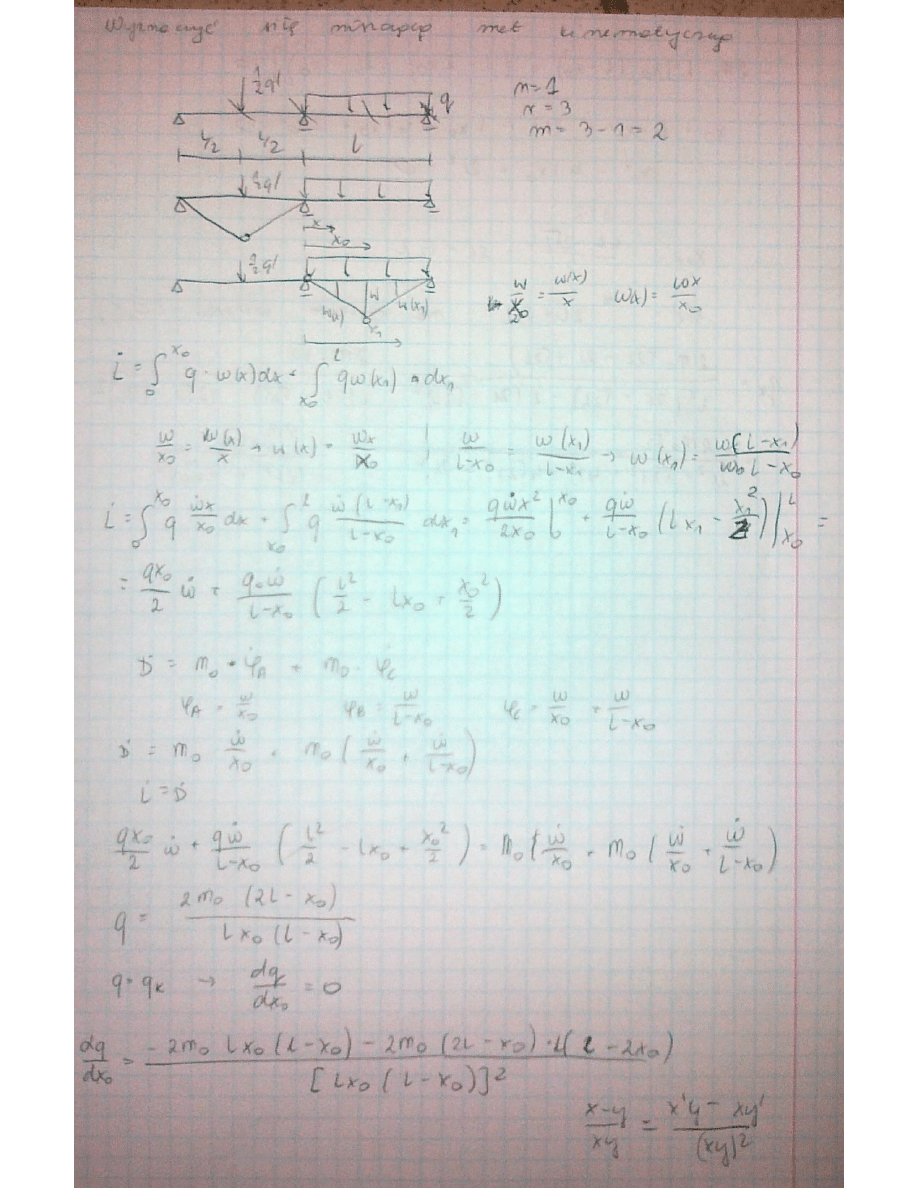 Wyznaczyć się niszczącą met kinematyczną
1/2 ql
q
n=1
x=3
m= 3-1=2
L/2 L/2 l
1/2 ql
x
x0
1/2 ql
w(x) w w(x1)
x1
w/x0 = w(x)/x w(x) = wx/x0
L̇ = ∫₀^x0 q · w(x)dx + ∫x0^L q w(x1) · dx1
w/x0 = w(x)/x → w(x) = wx/x0 | w/(L-x0) = w(x1)/(L-x1) → w(x1) = w(L-x1)/(L-x0)
L̇ = ∫₀^x0 q ẇx/x0 dx + ∫x0^L q ẇ(L-x1)/(L-x0) dx1 = qẇx²/2x0 |₀^x0 + qẇ/(L-x0) (Lx1 - x1²/2)|x0^L =
= qx0/2 ẇ + qẇ/(L-x0) (L²/2 - Lx0 + x0²/2)
Ḋ = m0 · φ̇A + m0 · φ̇C
φA = w/x0 φB = w/(L-x0) φC = w/x0 + w/(L-x0)
Ḋ = m0 ẇ/x0 + m0 (ẇ/x0 + ẇ/(L-x0))
L̇ = Ḋ
qx0/2 ẇ + qẇ/(L-x0) (L²/2 - Lx0 + x0²/2) = m0 ẇ/x0 + m0 (ẇ/x0 + ẇ/(L-x0))
q = 2m0 (2L-x0) / Lx0 (L-x0)
q = qk → dq/dx0 = 0
dq/dx0 = -2m0 Lx0 (L-x0) - 2m0 (2L-x0) · L(L-2x0) / [Lx0 (L-x0)]²
x-y/xy = x'y - xy'/(xy)²